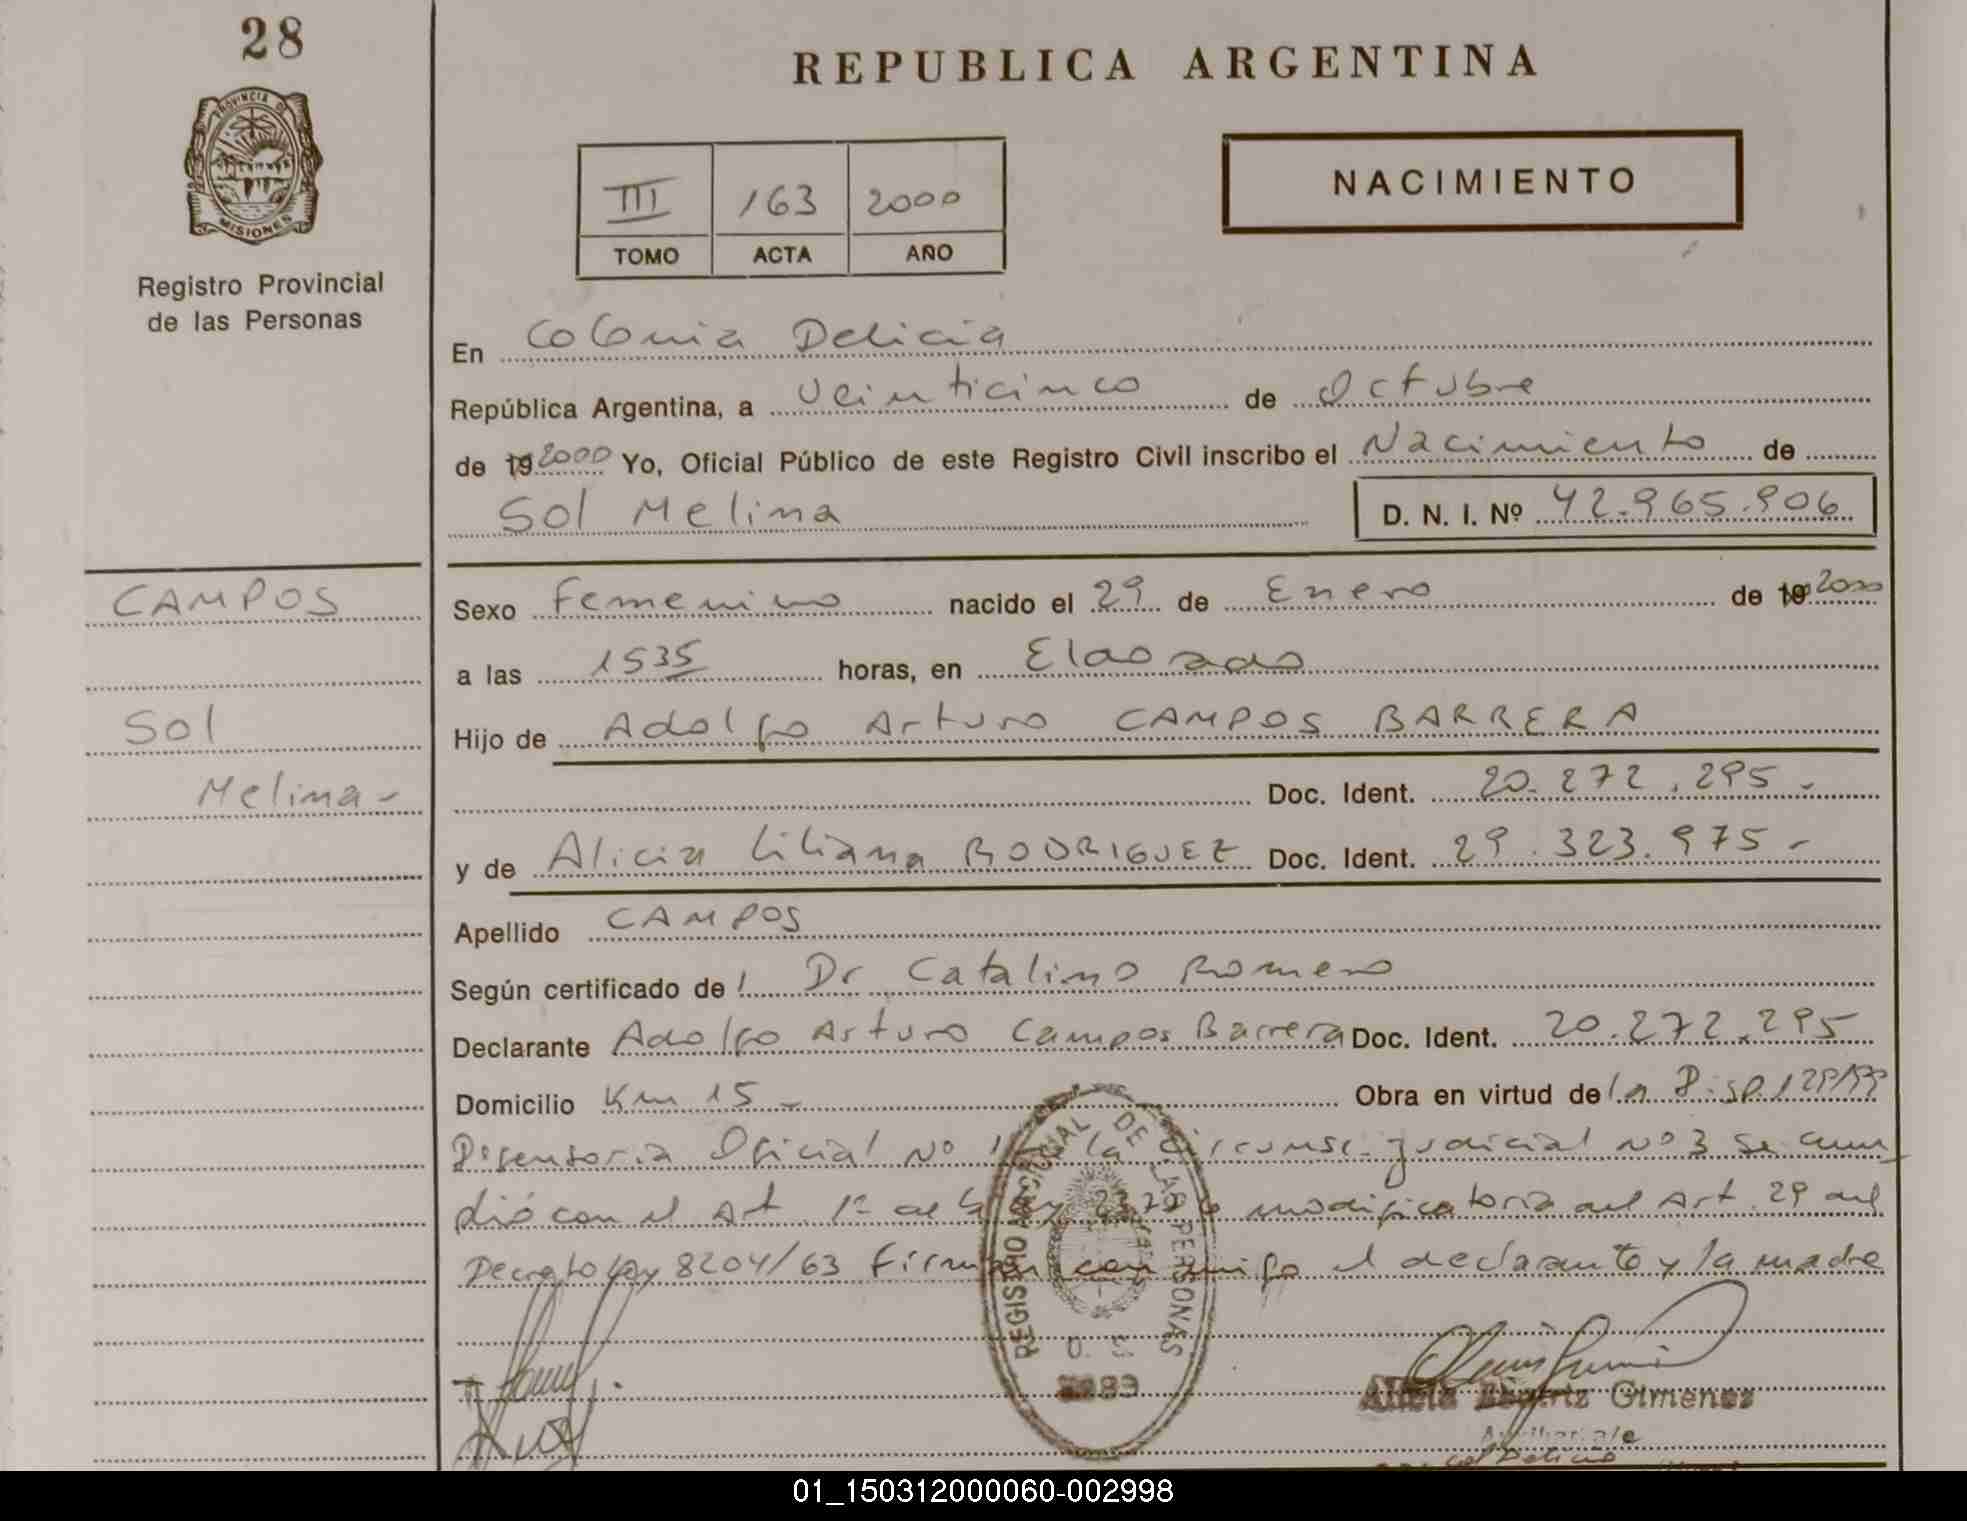 28
REPUBLICA ARGENTINA
PROVINCIA DE MISIONES
Registro Provincial
de las Personas
III 163 2000
TOMO ACTA AÑO
NACIMIENTO
En Colonia Delicia
República Argentina, a Veinticinco de Octubre
de 19 2000 Yo, Oficial Público de este Registro Civil inscribo el Nacimiento de
Sol Melina D. N. I. Nº 42.965.906
CAMPOS
Sol
Melina-
Sexo Femenino nacido el 29 de Enero de 19 2000
a las 1535 horas, en Eldorado
Hijo de Adolfo Arturo CAMPOS BARRERA
Doc. Ident. 20.272.295-
y de Alicia Liliana RODRIGUEZ Doc. Ident. 29.323.975-
Apellido CAMPOS
Según certificado del Dr Catalino Romero
Declarante Adolfo Arturo Campos Barrera Doc. Ident. 20.272.295
Domicilio Km 15- Obra en virtud de la Disp. 129/99
Oficial Nº 1 la Circunsc. Judicial Nº 3 se cum
plió con el Art. 1º de la Ley modificatoria del Art. 29 del
Decreto Ley 8204/63 Firman conmigo el declarante y la madre
REGISTRO NACIONAL DE LAS PERSONAS
O. S.
Alicia Beatriz Gimenez
Delicia
01_150312000060-002998